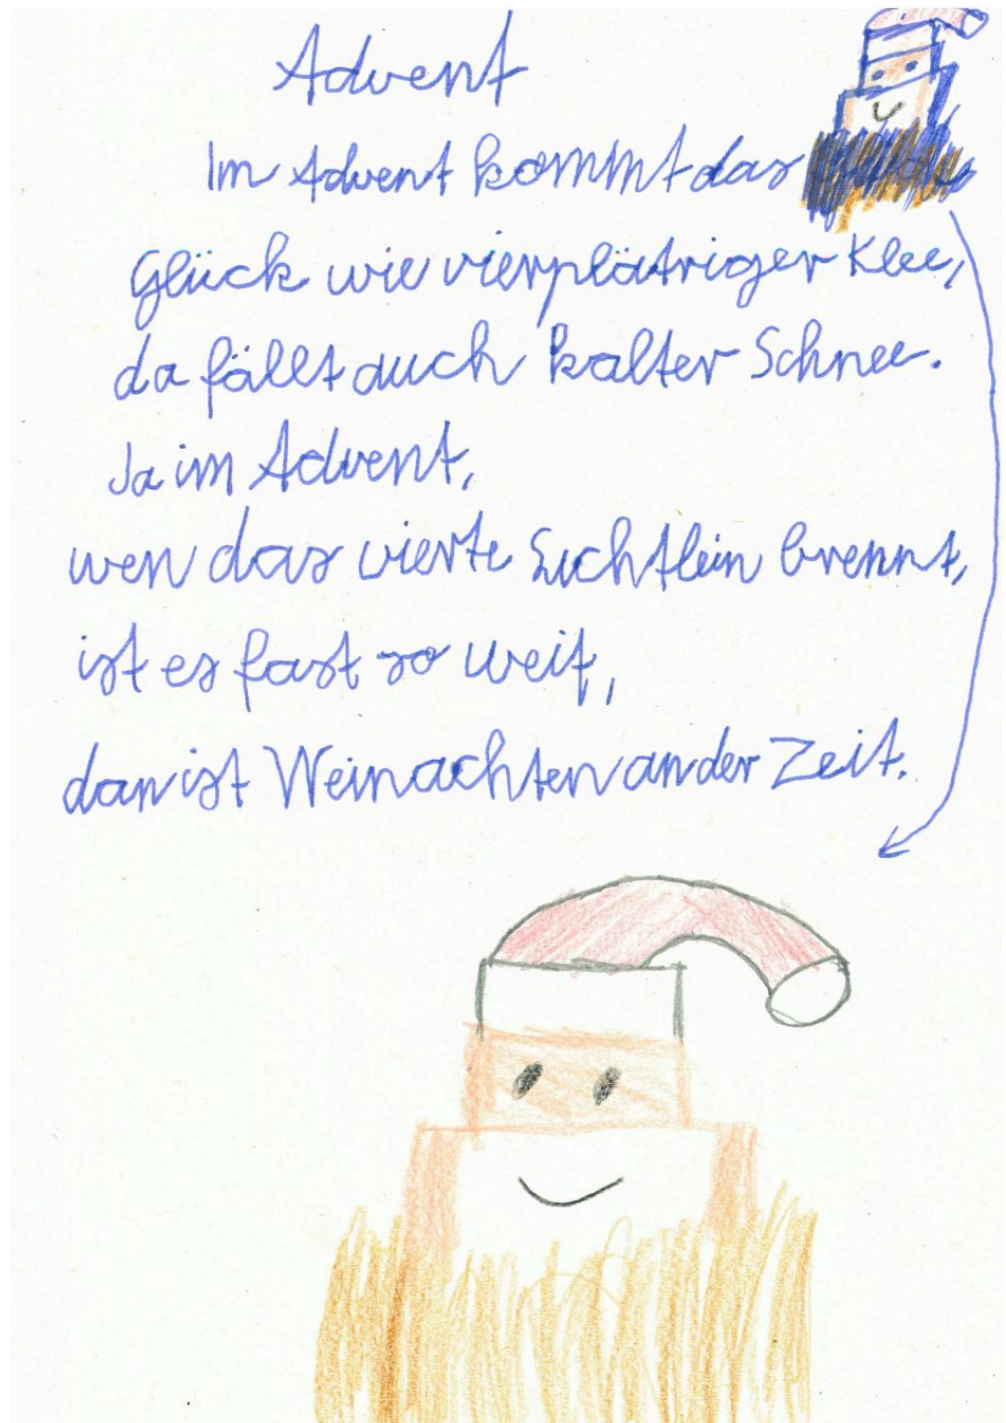 Advent
Im Advent kommt das
Glück wie vierplätriger Klee,
da fällt auch kalter Schnee.
Ja im Advent,
wen das vierte Lichtlein brennt,
ist es fast so weit,
dan ist Weinachten an der Zeit.